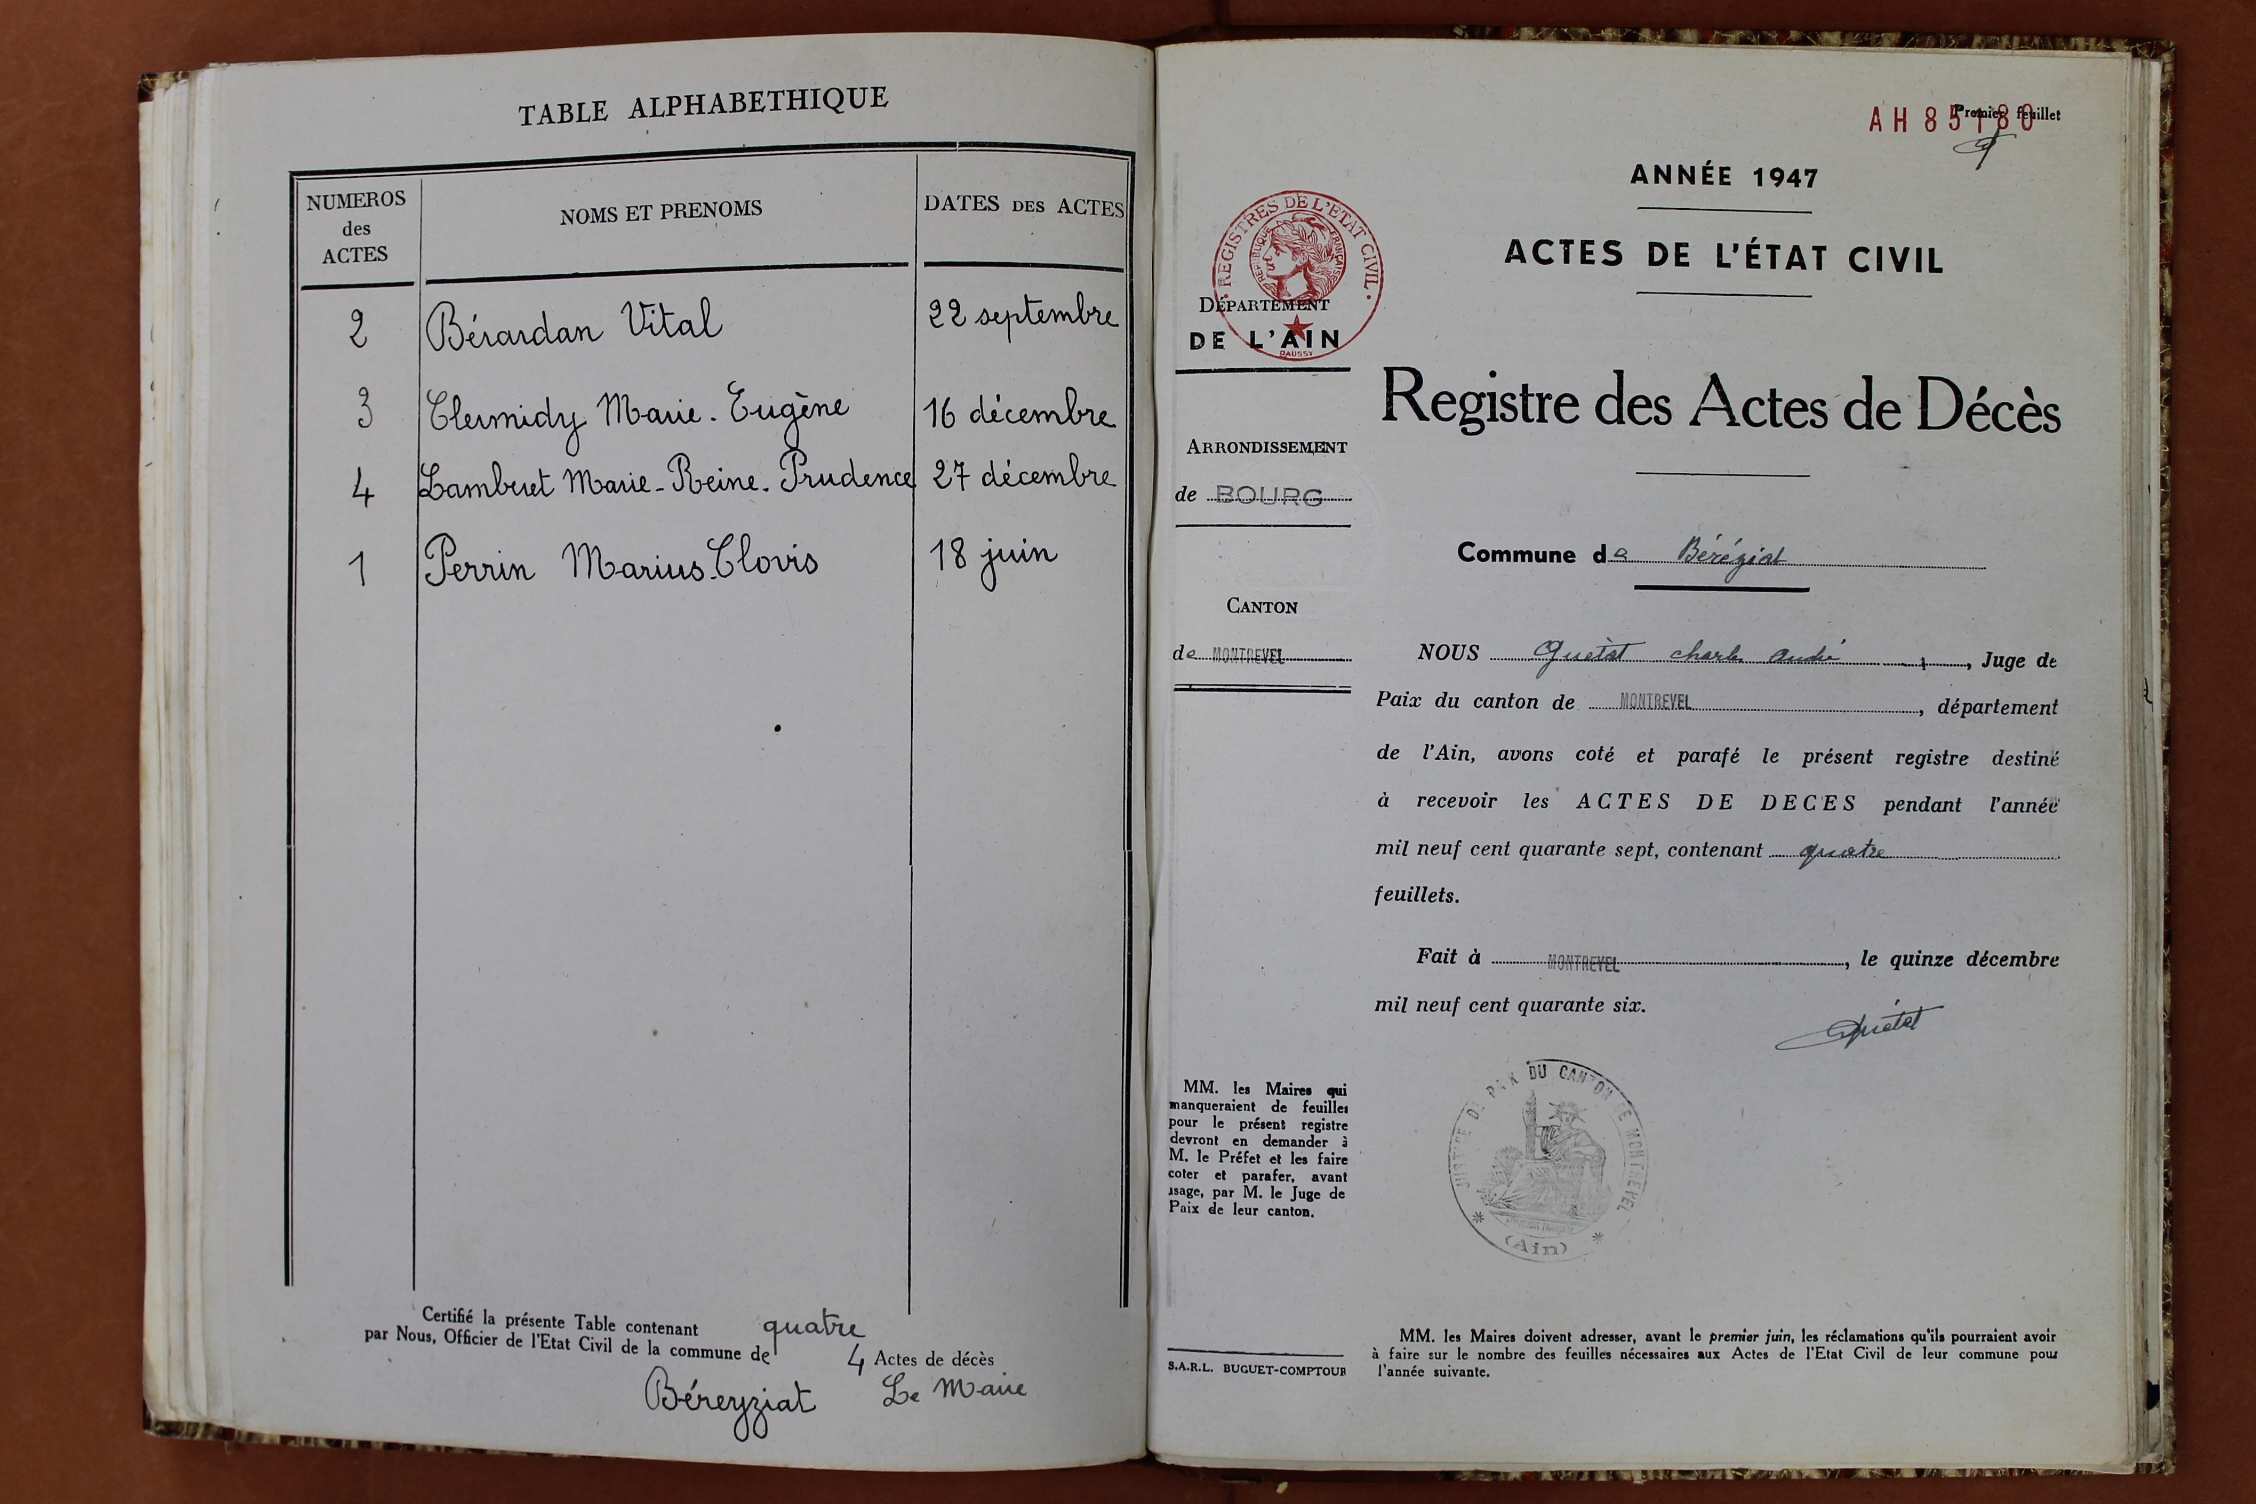 TABLE ALPHABETHIQUE
NUMEROS
des
ACTES
NOMS ET PRENOMS
DATES DES ACTES
2 Bérardan Vital 22 septembre
3 Clermidy Marie-Eugène 16 décembre
4 Lamberet Marie-Reine-Prudence 27 décembre
1 Perrin Marius-Clovis 18 juin
Certifié la présente Table contenant quatre
par Nous, Officier de l'Etat Civil de la commune de 4 Actes de décès
Béreyziat Le Maire
AH 85180 Premier feuillet
ANNÉE 1947
ACTES DE L'ÉTAT CIVIL
REGISTRES DE L'ETAT CIVIL
REPUBLIQUE FRANÇAISE
DAUSSY
DÉPARTEMENT
DE L'AIN
Registre des Actes de Décès
ARRONDISSEMENT
de BOURG
Commune de Béréziat
CANTON
de MONTREVEL
NOUS Quétat Charles André, Juge de
Paix du canton de MONTREVEL, département
de l'Ain, avons coté et parafé le présent registre destiné
à recevoir les ACTES DE DECES pendant l'année
mil neuf cent quarante sept, contenant quatre
feuillets.
Fait à MONTREVEL, le quinze décembre
mil neuf cent quarante six.
Quétat
JUSTICE DE PAIX DU CANTON DE MONTREVEL
(Ain)
MM. les Maires qui
manqueraient de feuilles
pour le présent registre
devront en demander à
M. le Préfet et les faire
coter et parafer, avant
usage, par M. le Juge de
Paix de leur canton.
S.A.R.L. BUGUET-COMPTOUR
MM. les Maires doivent adresser, avant le premier juin, les réclamations qu'ils pourraient avoir
à faire sur le nombre des feuilles nécessaires aux Actes de l'Etat Civil de leur commune pour
l'année suivante.